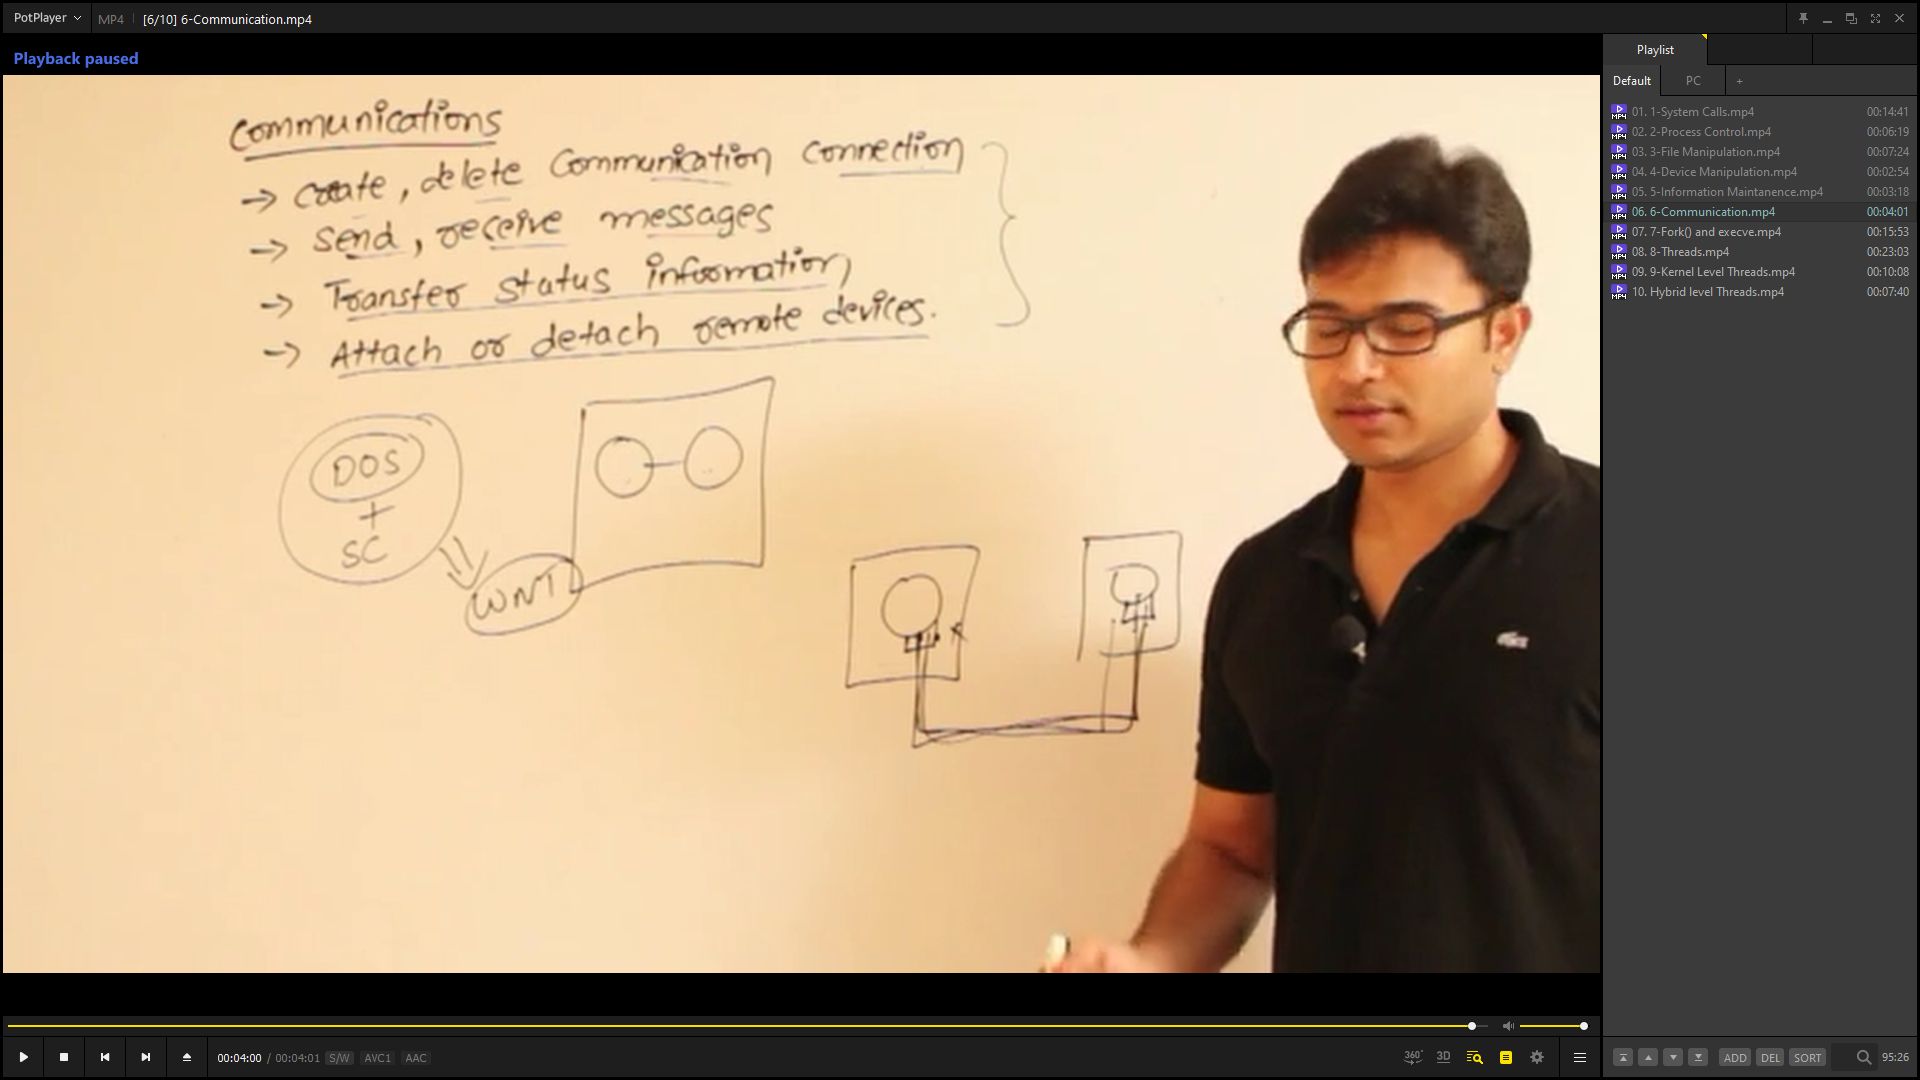 PotPlayer MP4 [6/10] 6-Communication.mp4
Playback paused
Communications
→ Create, delete Communication Connection
→ Send, receive messages
→ Transfer status information
→ Attach or detach remote devices.
DOS
+
SC
WNT
Playlist
Default PC +
01. 1-System Calls.mp4 00:14:41
02. 2-Process Control.mp4 00:06:19
03. 3-File Manipulation.mp4 00:07:24
04. 4-Device Manipulation.mp4 00:02:54
05. 5-Information Maintanence.mp4 00:03:18
06. 6-Communication.mp4 00:04:01
07. 7-Fork() and execve.mp4 00:15:53
08. 8-Threads.mp4 00:23:03
09. 9-Kernel Level Threads.mp4 00:10:08
10. Hybrid level Threads.mp4 00:07:40
00:04:00 / 00:04:01 S/W AVC1 AAC
360° 3D
ADD DEL SORT 95:26